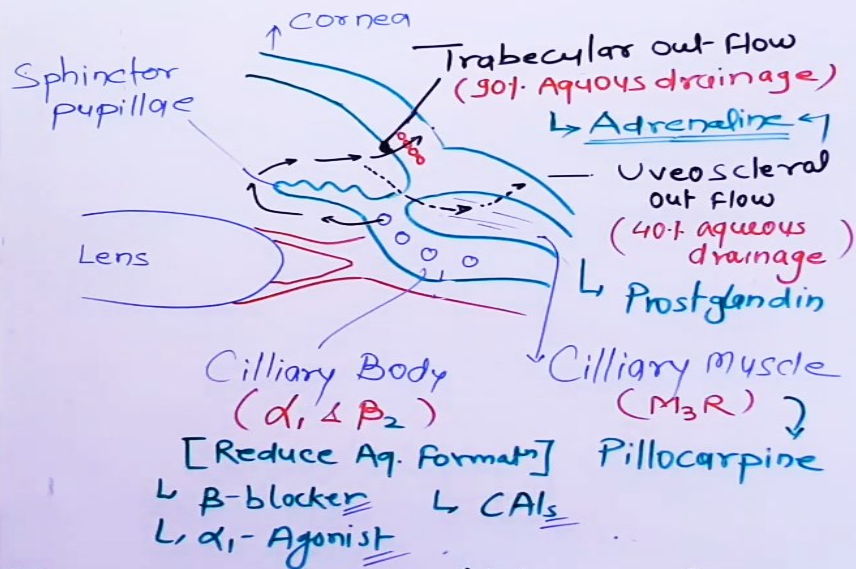 Cornea
Sphinctor
pupillae
Trabecular out-flow
(90% Aquous drainage)
↳ Adrenaline
Uveoscleral
out flow
(40% aqueous
drainage)
↳ Prostglandin
Lens
Cilliary Body
(α₁ & β₂)
[Reduce Aq. Formatn]
↳ β-blocker
↳ CAIs
↳ α₁-Agonist
Cilliary Muscle
(M₃R)
Pillocarpine